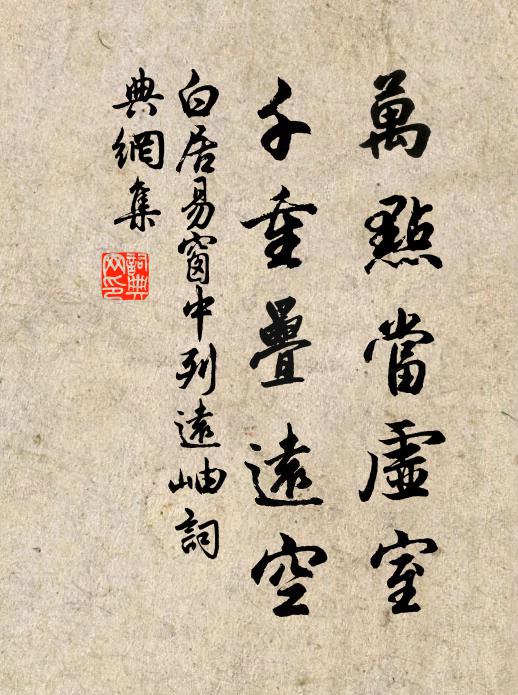 萬點當虛室
千重疊遠空
白居易窗中列遠岫詞
典網集
詞典
网印